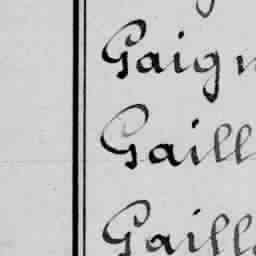 Gaign
Gaill
Gaill